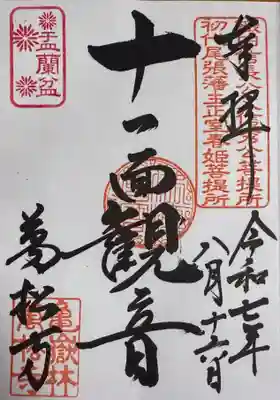 奉拝
初代尾張藩主正室春姫菩提所
令和七年
八月十六日
十一面觀音
盂蘭盆
萬松寺
龜嶽林
萬松寺